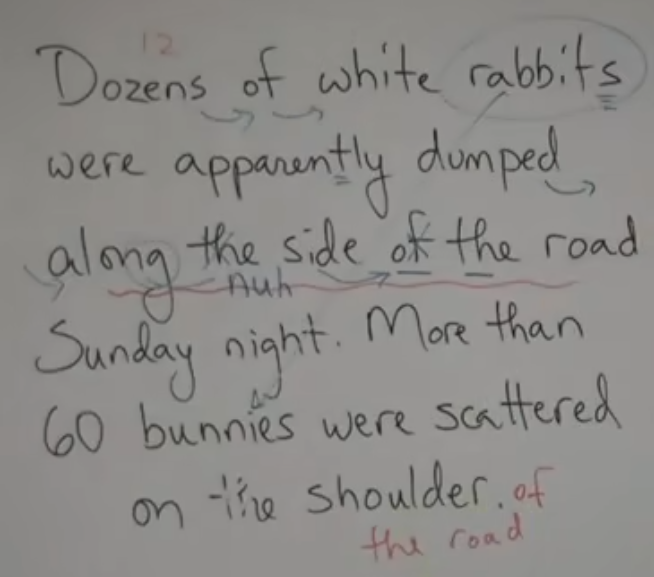 12
Dozens of white rabbits
were apparently dumped
along the side of the road
nuh
Sunday night. More than
60 bunnies were scattered
on the shoulder. of
the road